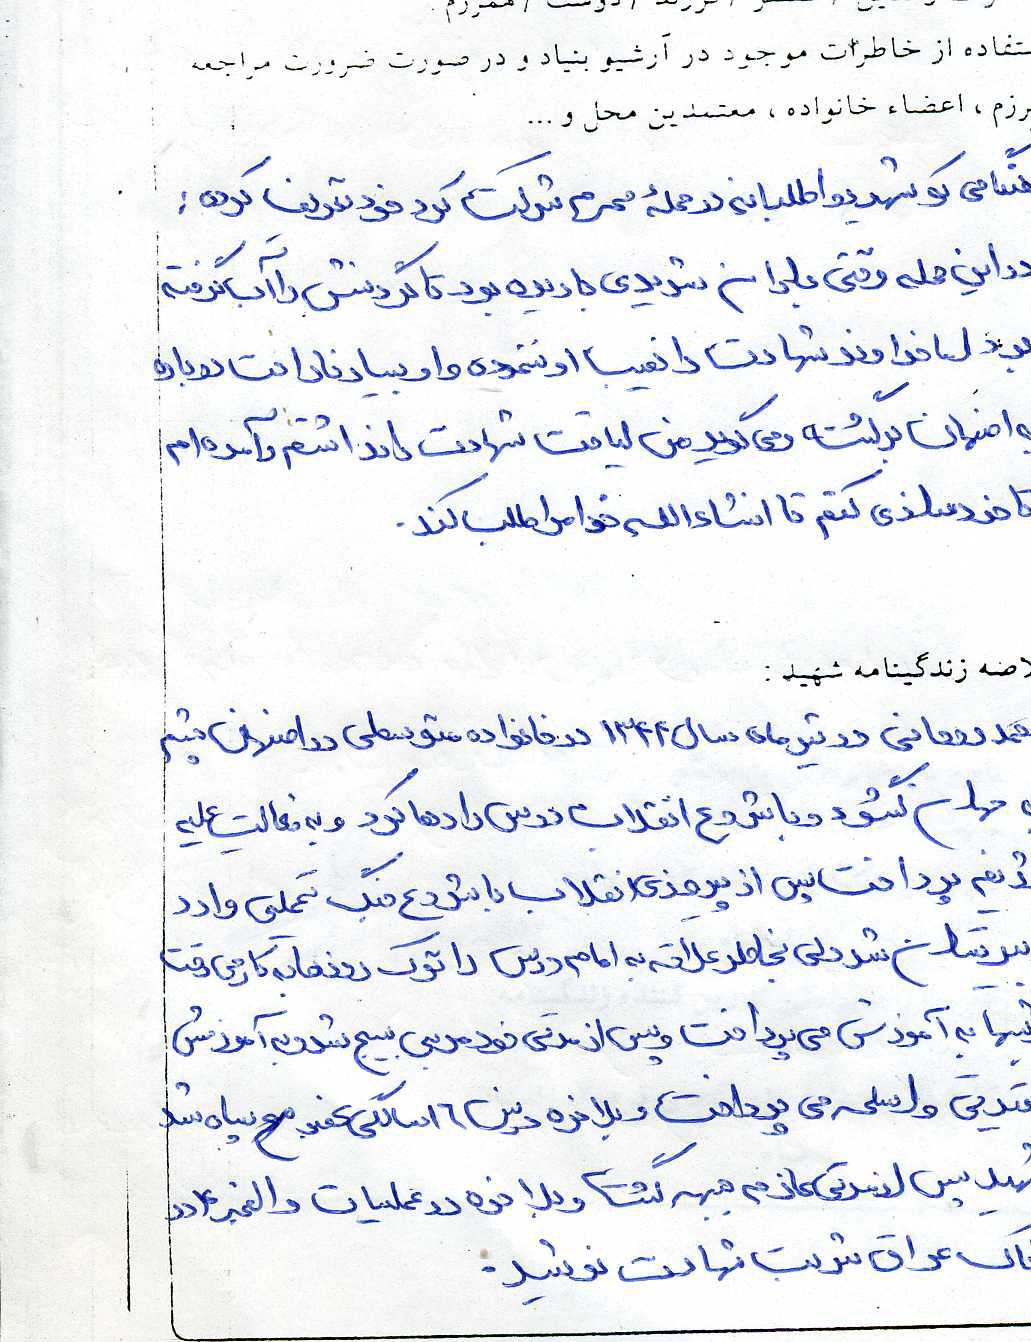 همسر / فرزند / دوست / همرزم
ستفاده از خاطرات موجود در آرشیو بنیاد و در صورت ضرورت مراجعه
رزم ، اعضاء خانواده ، معتمدین محل و ...
هنگامی که شهید داوطلبانه در حمله محرم شرکت کرد خود تعریف کرده :
در این حمله وقتی باران شدیدی باریده بود تا گردنش را آب گرفته
بود اما خداوند شهادت را نصیب او ننموده و او بسیار ناراحت دوباره
به اصفهان برگشته و می‌گوید من لیاقت شهادت را نداشتم و آمده‌ام
تا خودسازی کنم تا انشاءالله خدا مرا طلب کند.
لاصه زندگینامه شهید :
در تیرماه سال ۱۳۴۴ در خانواده متوسطی در اصفهان چشم
به جهان گشود و با شروع انقلاب درس را رها کرد و به فعالیت علیه
رژیم پرداخت پس از پیروزی انقلاب با شروع جنگ تحمیلی وارد
شد ولی بخاطر علاقه به امام درس را ترک روزها به کار می‌رفت
شبها به آموزش می‌پرداخت و پس از مدتی خود مربی بسیج شد و به آموزش
و اسلحه می‌پرداخت و بالاخره در سن ۱۶ سالگی عضو سپاه شد
شهید پس از مدتی عازم جبهه گشت و بالاخره در عملیات والفجر ۴ در
خاک عراق شربت شهادت نوشید.